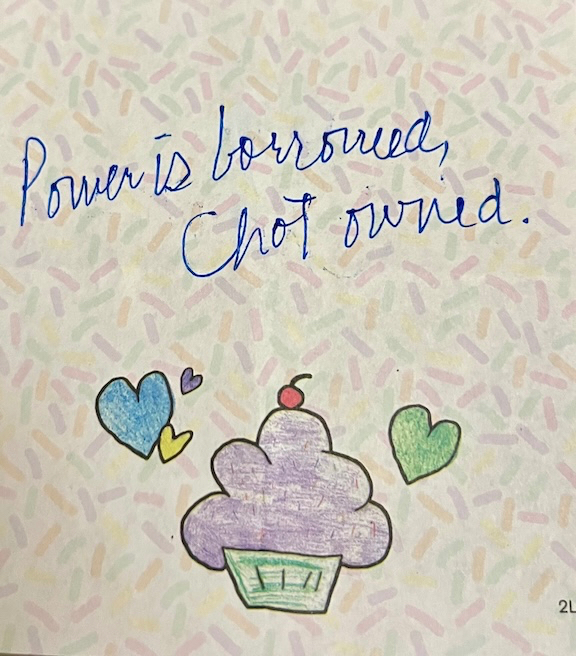 Power is borrowed,
Chot owned.
2L